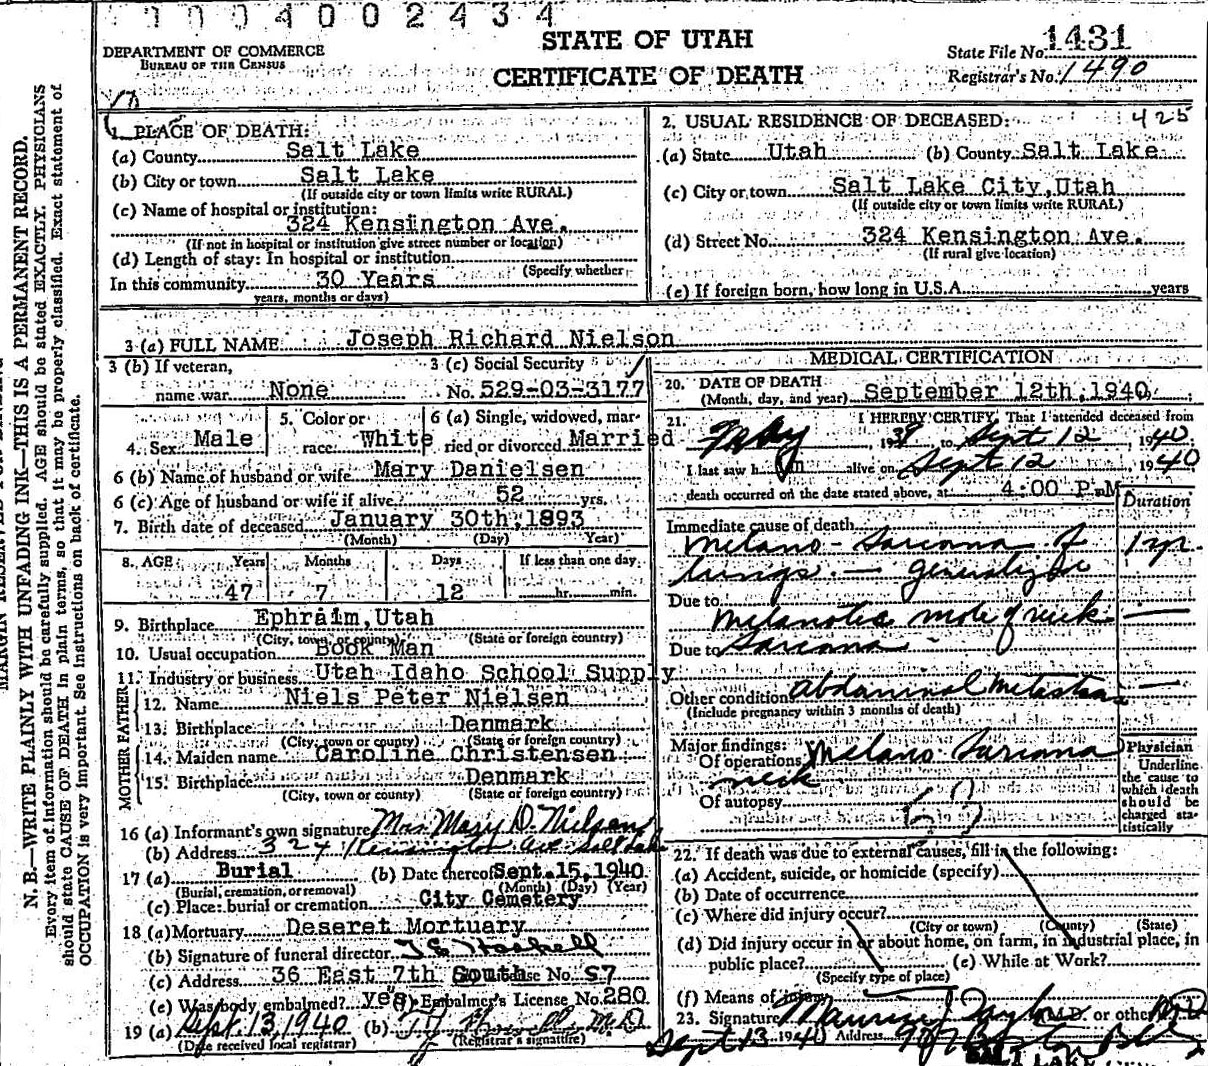 1004002434
DEPARTMENT OF COMMERCE
BUREAU OF THE CENSUS
STATE OF UTAH
CERTIFICATE OF DEATH
State File No. 1431
Registrar's No. 1490
MARGIN RESERVED FOR BINDING
N. B.—WRITE PLAINLY WITH UNFADING INK—THIS IS A PERMANENT RECORD.
Every item of information should be carefully supplied. AGE should be stated EXACTLY. PHYSICIANS
should state CAUSE OF DEATH in plain terms, so that it may be properly classified. Exact statement of
OCCUPATION is very important. See instructions on back of certificate.
1. PLACE OF DEATH:
(a) County Salt Lake
(b) City or town Salt Lake
(If outside city or town limits write RURAL)
(c) Name of hospital or institution:
324 Kensington Ave.
(If not in hospital or institution give street number or location)
(d) Length of stay: In hospital or institution
(Specify whether
In this community 30 Years
years, months or days)
2. USUAL RESIDENCE OF DECEASED: 425
(a) State Utah (b) County Salt Lake
(c) City or town Salt Lake City, Utah
(If outside city or town limits write RURAL)
(d) Street No. 324 Kensington Ave.
(If rural give location)
(e) If foreign born, how long in U.S.A. years
3 (a) FULL NAME Joseph Richard Nielson
3 (b) If veteran, 3 (c) Social Security
name war None No. 529-03-3177
4. Sex Male 5. Color or race White 6 (a) Single, widowed, married or divorced Married
6 (b) Name of husband or wife Mary Danielsen
6 (c) Age of husband or wife if alive 52 yrs.
7. Birth date of deceased January 30th, 1893
(Month) (Day) Year)
8. AGE Years Months Days If less than one day
47 7 12 hr. min.
9. Birthplace Ephraim, Utah
(City, town, or county) (State or foreign country)
10. Usual occupation Book Man
11. Industry or business Utah Idaho School Supply
FATHER
12. Name Niels Peter Nielsen
13. Birthplace Denmark
(City, town or county) (State or foreign country)
MOTHER
14. Maiden name Caroline Christensen
15. Birthplace Denmark
(City, town or county) (State or foreign country)
16 (a) Informant's own signature Mrs. Mary D. Nielsen
(b) Address 324 Kensington Ave Salt Lake
17 (a) Burial (b) Date thereof Sept. 15, 1940
(Burial, cremation, or removal) (Month) (Day) (Year)
(c) Place: burial or cremation City Cemetery
18 (a) Mortuary Deseret Mortuary
(b) Signature of funeral director
(c) Address 36 East 7th South License No. 57
(e) Was body embalmed? yes Embalmer's License No. 280
19 (a) Sept. 13, 1940 (b) M.D.
(Date received local registrar) (Registrar's signature)
MEDICAL CERTIFICATION
20. DATE OF DEATH
(Month, day, and year) September 12th, 1940
21. I HEREBY CERTIFY, That I attended deceased from
1938 to Sept 12, 1940
I last saw him alive on Sept 12, 1940
death occurred on the date stated above, at 4:00 P.M
Duration
Immediate cause of death
Melano-Sarcoma of 1 yr.
lungs — generalized
Due to Melanotic mole of neck —
Due to Sarcoma
Other conditions Abdominal Metastases —
(Include pregnancy within 3 months of death)
Major findings:
Of operations Melano Sarcoma
neck
Of autopsy
Physician
Underline
the cause to
which death
should be
charged sta-
tistically
22. If death was due to external causes, fill in the following:
(a) Accident, suicide, or homicide (specify)
(b) Date of occurrence
(c) Where did injury occur?
(City or town) (County) (State)
(d) Did injury occur in or about home, on farm, in industrial place, in
public place? (e) While at Work?
(Specify type of place)
(f) Means of injury
23. Signature Maurice J Taylor M.D. or other M.D.
Sept 13 1940 Address
SALT LAKE